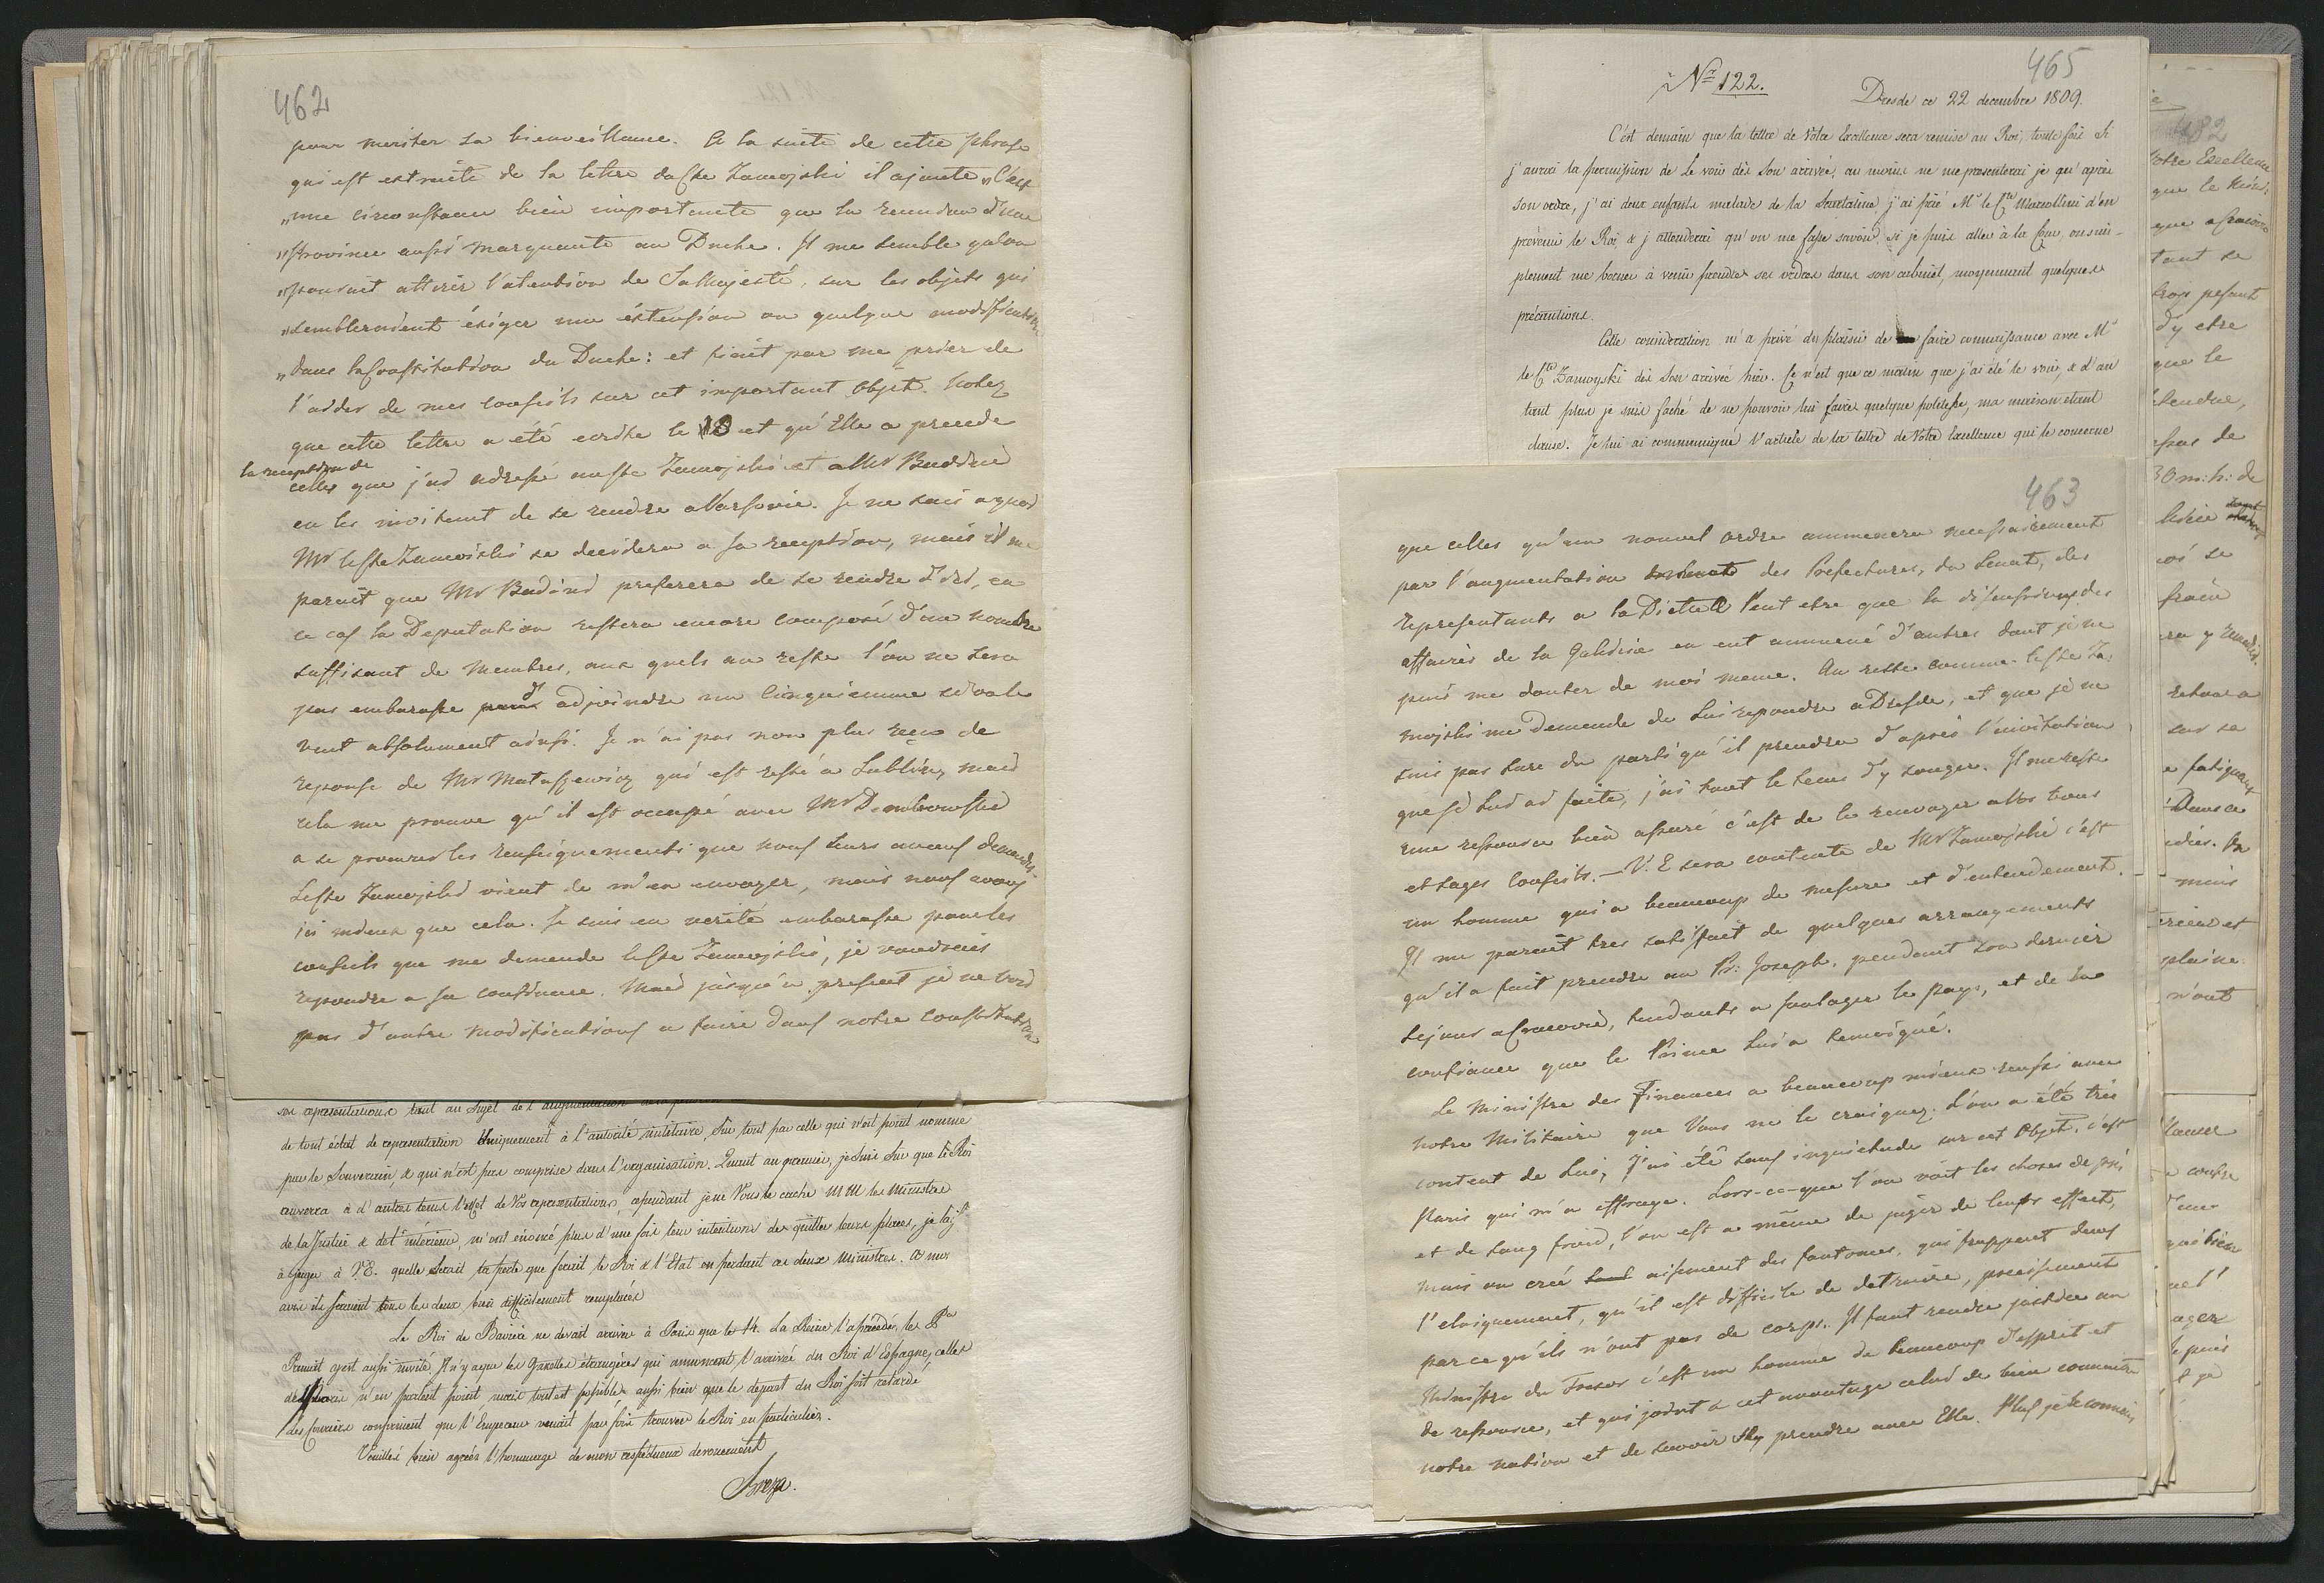 462
pour meriter sa bienveillance. A la suite de cette phrase
qui est extraite de la lettre du Cte Zamojski il ajoute „C'est
„une circonstance bien importante que la reunion d'une
„Province aussi marquante au Duche. Il me semble qu'on
„pourait attirer l'atention de Sa Majesté, sur les objets qui
„sembleroient éxiger une éxtension ou quelque modification
„dans la Constitution du Duche: et finit par me prier de
l'aider de mes conseils sur cet important objet. Notez
que cette lettre a été ecrite le 18 et qu'Elle a precede
la reception de
celles que j'ai adressé au Cte Zamojski et a Mr Badeni
en les invitant de se rendre a Varsovie. Je ne sais a quoi
Mr le Cte Zamoiski se decidera a sa reception, mais il me
parait que Mr Badeni preferera de se rendre d'ici, en
ce cas la Deputation restera encore composé d'un nombre
suffisant de Membres, aux quels au reste l'on ne sera
pas embarasse d'adjoindre un cinquiemme si on le
veut absolument ainsi. Je n'ai pas non plus reçu de
reponse de Mr Matuszewicz qui est resté a Lublin, mais
cela me prouve qu'il est occupé avec Mr Dembowski
a se procurer les renseignements que nous leurs avons demandes.
Le Cte Zamojski vient de m'en envoyer, mais nous avons
ici mieux que cela. Je suis en verité embarasse pour les
conseils que me demande le Cte Zamojski, je voudrais
repondre a sa confiance. Mais jusqu'a present je ne vois
pas d'autre modifications a faire dans notre Constitution
ses representations tout au sujet de l'augmentation
de tout éclat de representation uniquement à l'autorité militaire, sur tout par celle qui n'est point nommé
par le Souverain, & qui n'est pas comprise dans l'organisation. Quant au premier, je suis sur que le Roi
renverra à d'autres tems l'effet de Vos representations, cependant je ne Vous le cache MM les Ministres
de la Justice & de l'interieur, m'ont énoncé plus d'une fois leur intentions de quitter leurs places, je laisse
à juger à V.E. quelle serait la perte que ferait le Roi & l'Etat en perdant ces deux Ministres. A mon
avis ils seraient tous les deux bien difficilement remplacés
Le Roi de Baviere ne devait arriver à Paris que le 14. La Reine l'a précédé, le Pce
Primat y est aussi invité. Il n'y a que les Gazettes étrangères qui anoncent l'arrivée du Roi d'Espagne, celles
de Paris n'en parlent point, mais tout est possible aussi bien que le depart du Roi soit retardé
les Couriers conprenent que l'Empereur venait par fois trouver le Roi en particulier.
Veuillés bien agréer l'hommage de mon respectueux devouement
Breza.
465
Nr 122.
Dresde ce 22 decembre 1809.
C'est demain que la lettre de Votre Excellence sera remise au Roi, toute fois si
j'aurai la permission de Le voir dès Son arrivée, au moins ne me presenterai je qu'après
son ordre, j'ai deux enfants malade de la Scarlatine, j'ai prié Mr le Cte Marcollini d'en
prévenir le Roi, & j'attenderai qu'on me fasse savoir, si je puis aller à la Cour, ou sim-
plement me borner à venir prendre ses ordres dans son cabinet, moyennant quelques
précautions.
Cette consideration m'a privé du plaisir de faire connaissance avec Mr
le Cte Zamoyski dès Son arrivée hier. Ce n'est que ce matin que j'ai été le voir, & d'au
tant plus je suis faché de ne pouvoir lui faire quelque politesse, ma maison étant
clause. Je lui ai communiqué l'article de la lettre de Votre Excellence qui le concerne
463
que celles qu'un nouvel ordre ammenera necessairement
par l'augmentation des Prefectures, du Senat, des
representants a la Diette. Peut etre que la discussion des
affaires de la Galicie en eut ammené d'autres dont je ne
puis me douter de moi meme. Au reste comme le Cte Za-
mojski me demande de lui repondre a Dresde, et que je ne
suis pas sure du parti qu'il prendra d'apres l'invitation
que je lui ai faite, j'ai tout le tems d'y songer. Il me reste
une ressource bien assuré c'est de le renvoyer a Vos bons
et sages Conseils. – V. E sera contente de Mr Zamojski c'est
un homme qui a beaucoup de mesure et d'entendement.
Il me parait tres satisfait de quelques arrangements
qu'il a fait prendre au Pr: Joseph. pendant son dernier
sejour a Cracovie, tendants a soulager le pays, et de la
confiance que le Prince lui a temoigné.
Le Ministre des Finances a beaucoup mieux reussi avec
notre Militaire que Vous ne le craignez. L'on a été tres
content de Lui, J'ai été sans inquietude sur cet Objet, c'est
Paris qui m'a effraye. Lors-ce-que l'on voit les choses de près
et de sang froid, l'on est a même de juger de leurs effect,
mais on crée aisement des fantomes, qui frappent dans
l'eloignement, qu'il est difficile de detruire, precisement
parce qu'ils n'ont pas de corps. Il faut rendre justice au
Ministre du Tresor c'est un homme de beaucoup d'esprit et
de ressource, et qui joint a cet avantage celui de bien connaitre
notre nation et de savoir s'y prendre avec Elle. Plus je le connais
482
Votre Excellence
que le
que a Cracovie
tant se
trop pesant
d'y etre
que le
etendue,
pas de
30 m: h: de
licie
se
frais
y rendit.
retour a
sur sa
fatigant
Dans ce
mais
et
plaine
n'ont
contre
d'une
bien
ager
je puis
et je